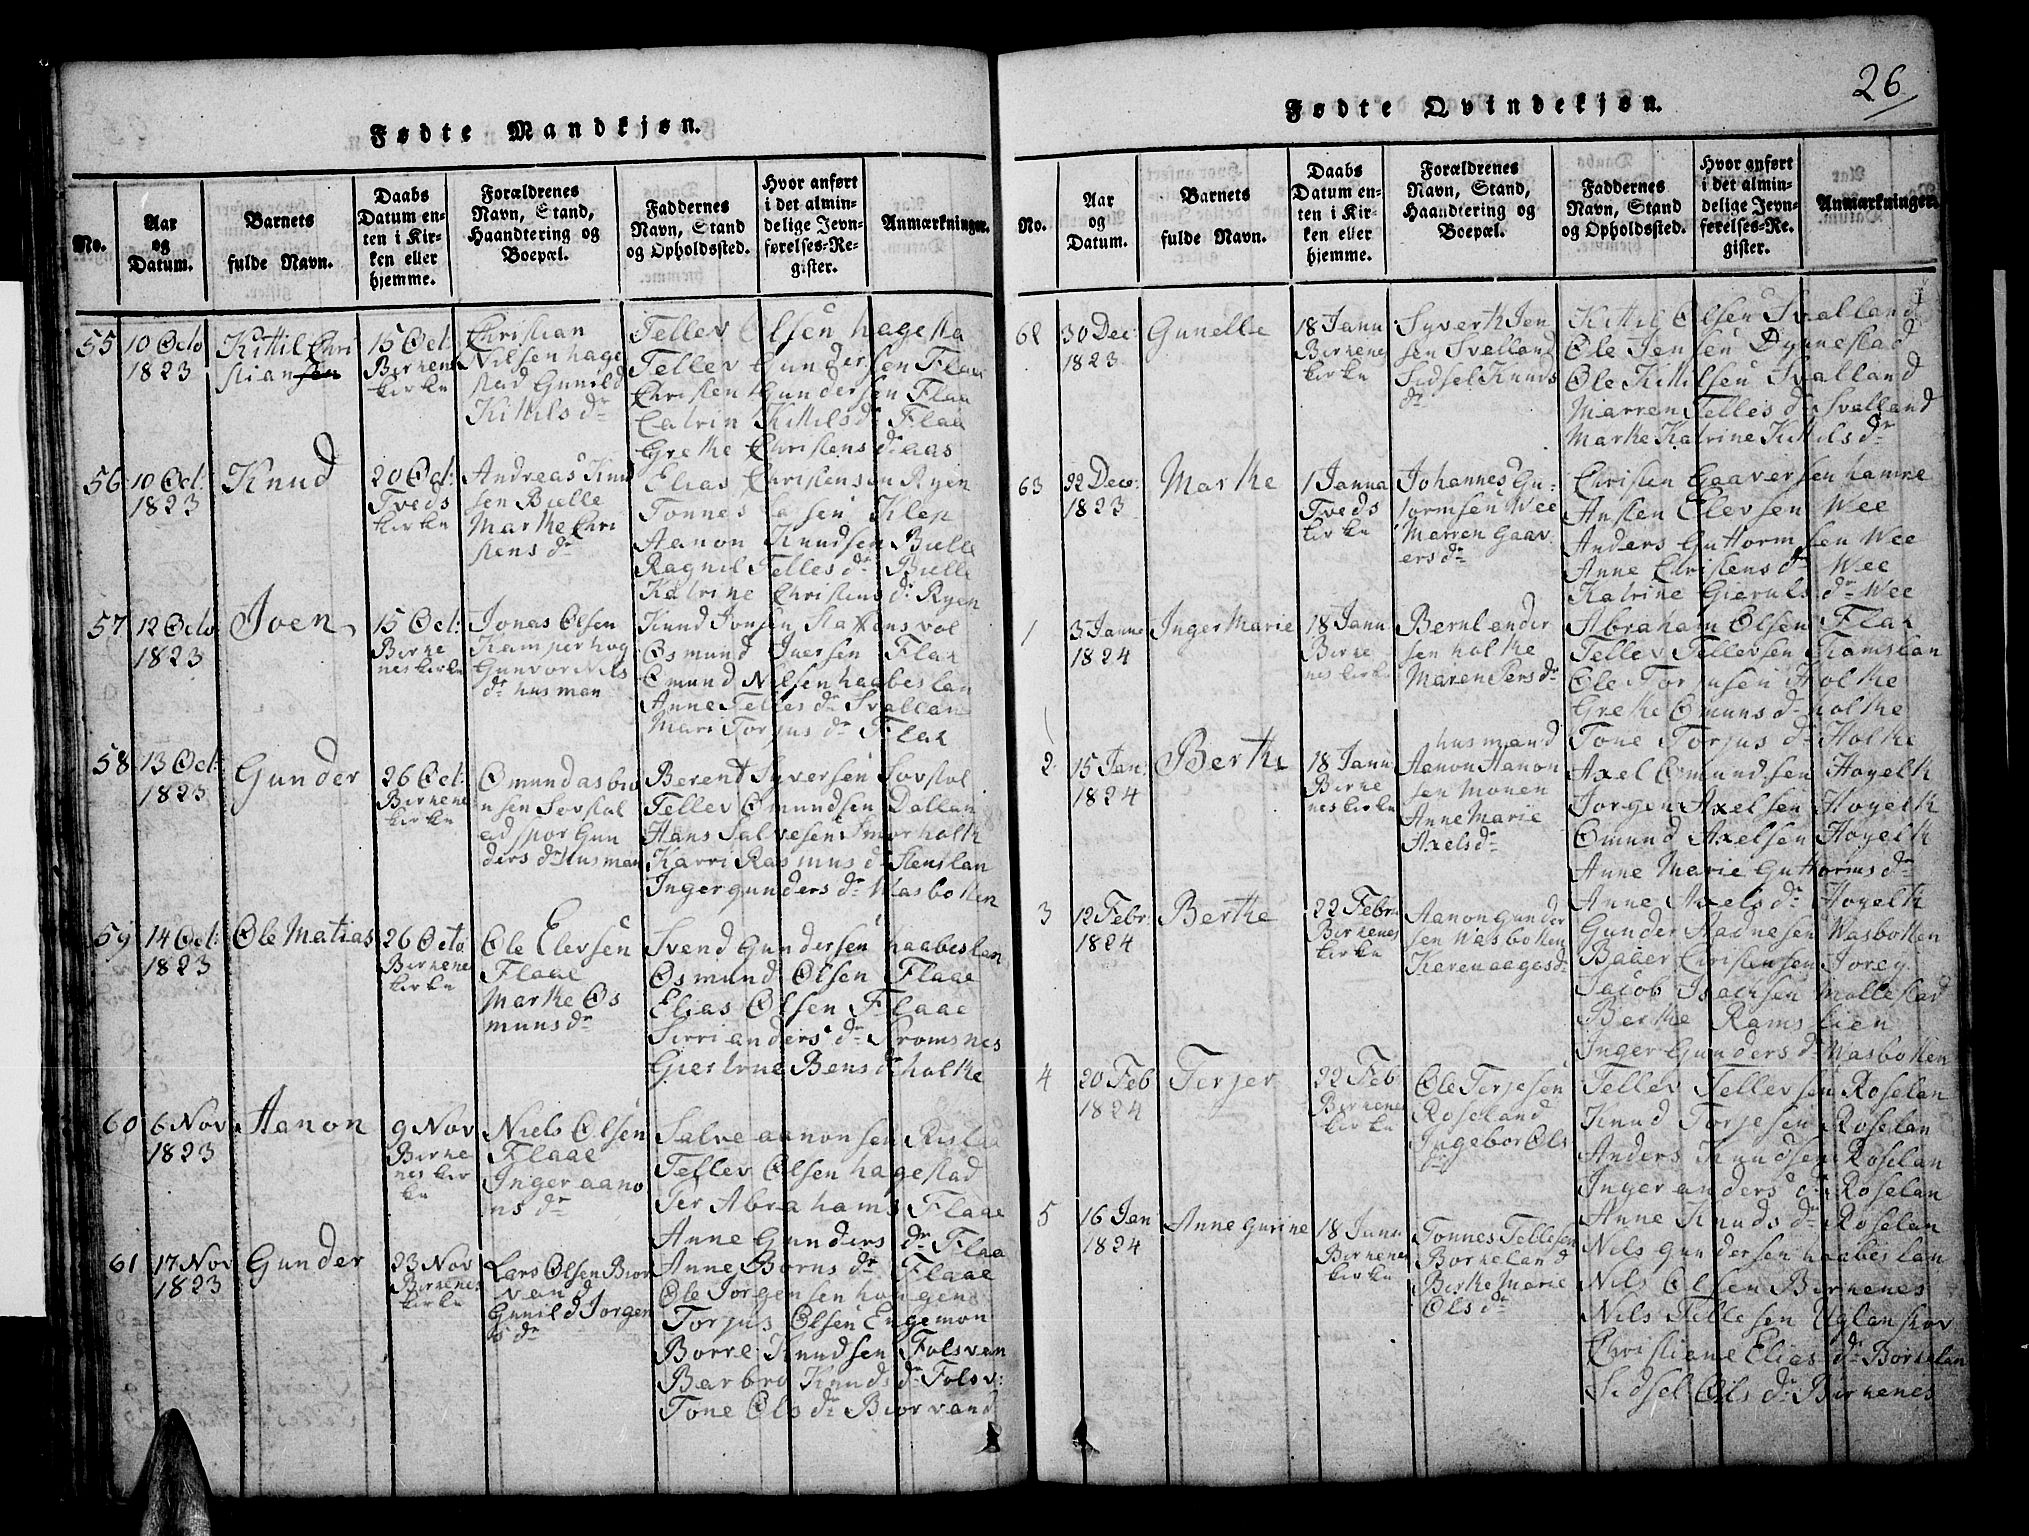 Fødte Mandkjøn.
No.
Aar
og
Datum.
Barnets
fulde Navn.
Daabs
Datum en-
ten i Kir-
ken eller
hjemme.
Forældrenes
Navn, Stand,
Haandtering og
Boepæl.
Faddernes
Navn, Stand
og Opholdssted.
Hvor anført
i det almin-
delige Jevn-
førelses-Re-
gister.
Anmærkninger.
55
10 Octo
1823
Kittil Chri
stiansen
15 Oct:
Birenes
kirke
Christian
Nilsen hage
stad Gunild
Kittils dr
Tellev Olsen hagesta
Tellev Gundersen Flaa
Christen Gundersen Flaa
Catrin Kittils dr Flaa
Grethe Christens dr aas
56
10 Oct:
1823
Knud
20 Oct:
Tveds
kirke
Andreas Knud
sen Bielle
Marthe Chri
stens dr
Elias Christensen Ryen
Tonnes Klep
Aanon Knudsen Bielle
Ragnil Telles dr Bielle
Katrine Christens dr Ryen
57
12 Octo
1823
Joen
15 Oct:
Birke
nes kirke
Jonas Olsen
Kamperhog
Gunvor Nils
dr husman
Knud Jonsen
Osmund Juersen Flak
Omund Nilsen haabeslan
Anne Telles dr Svallan
Mari Torjus dr Flak
58
13 Oct:
1823
Gunder
26 Oct:
Birkene
kirke
Omund asbio
nsen Sovstol
Gun
ders dr husman
Berent Syversen Sovstol
Tellev Omundsen Dallan
Hans Salvesen Smorholth
Karri Rasmus dr Stenslan
Inger gunders dr Wasbotten
59
14 Oct:
1823
Ole Matias
26 Octo
Birkene
kirke
Ole Elevsen
Flaae
Marthe Os
muns dr
Svend Gundersen haabeslan
Osmund Olsen Flaae
Elias Olsen Flaae
Sirri anders dr Stromsnes
Giertrue Bens dr holthe
60
6 Nov
1823
Aanon
9 Nov
Birke
nes kir
ke
Niels Olsen
Flaae
Inger aano
ns dr
Salve aanonsen Ristad
Tellev Olsen hagestad
Per Abrahams Flaae
Anne Gunders dr Flaa
Anne Borns dr Flaae
61
17 Nov
1823
Gunder
23 Nov
Birkenes
kirke
Lars Olsen Bior
vand
Gunild Jorgen
s dr
Ole Jorgensen haugen
Torjus Olsen Engemon
Borre Knudsen Folsvan
Barbro Knuds dr Folsv:
Tone Ols dr Biorvand
26
Fødte Qvindekjøn.
No.
Aar
og
Datum.
Barnets
fulde Navn.
Daabs
Datum en-
ten i Kir-
ken eller
hjemme.
Forældrenes
Navn, Stand,
Haandtering og
Boepæl.
Faddernes
Navn, Stand
og Opholdssted.
Hvor anført
i det almin-
delige Jevn-
førelses-Re-
gister.
Anmærkninger.
62
30 Dec:
1823
Gunelle
18 Janu
Birkene
kirke
Syverth Jen
sen Svelland
Sidsel Knuds
dr
Kittil Olsen Svalland
Ole Jensen Dynnestad
Ole Kittilsen Svalland
Marren Telles dr Svalland
Marthe Katrine Kittils dr
63
22 Dec:
1823
Marthe
1 Janua
Tveds
kirke
Johannes Gu-
tormsen Wee
Marren Gaav
ers dr
Christen Gaaversen hamre
Ansten Elevsen Wee
Anders Guttormsen Wee
Anne Christens dr Wee
Katrine Gieruls dr Wee
1
3 Janua
1824
Inger Marie
18 Janu
Birke
nes kirke
Bernt ander
sen holthe
Maren Pers dr
Abraham Olsen Flak
Tellev Tellevsen Ramslan
Ole Torjusen Holthe
Grethe Omuns dr holthe
Tone Torjus dr Holthe
2
15 Jan:
1824
Berthe
18 Janu
Birke
nes kirke
husmand
Aanon Aanon
sen Monen
Anne Marie
Axels dr
Axel Omundsen Hoyelth
Jorgen Axelsen Hoyelth
Omund Axelsen Hoyelth
Anne Marie Guttorms dr
Anne Axels dr Hoyelth
3
12 Febr
1824
Berthe
22 Febru
Birkenes
kirke
Aanon gunder
sen Wasbotten
Karen aages dr
Gunder Aagnesen Wasbotten
Christensen
Jacob Isachsen Mollestad
Berthe Ramslien
Inger Gunders dr Wasbotten
4
20 Feb
1824
Terjer
22 Feb
Birkenes
kirke
Ole Terjesen
Roseland
Ingebor Ols
dr
Tellev Tellevsen Roselan
Knud Torjesen Roselan
Anders Knudsen Roselan
Inger anders dr Roselan
Anne Knuds dr Roselan
5
16 Jan
1824
Anne Gurine
18 Janu
Birkenes
kirke
Tonnes Tellesen
Borkeland
Birthe Marie
Ols dr
Nils Gundersen haabeslan
Nils Olsen Birkenes
Nils Tellesen Uglanskov
Christiane Elias dr Borkelan
Sidsel Ols dr Birkenes